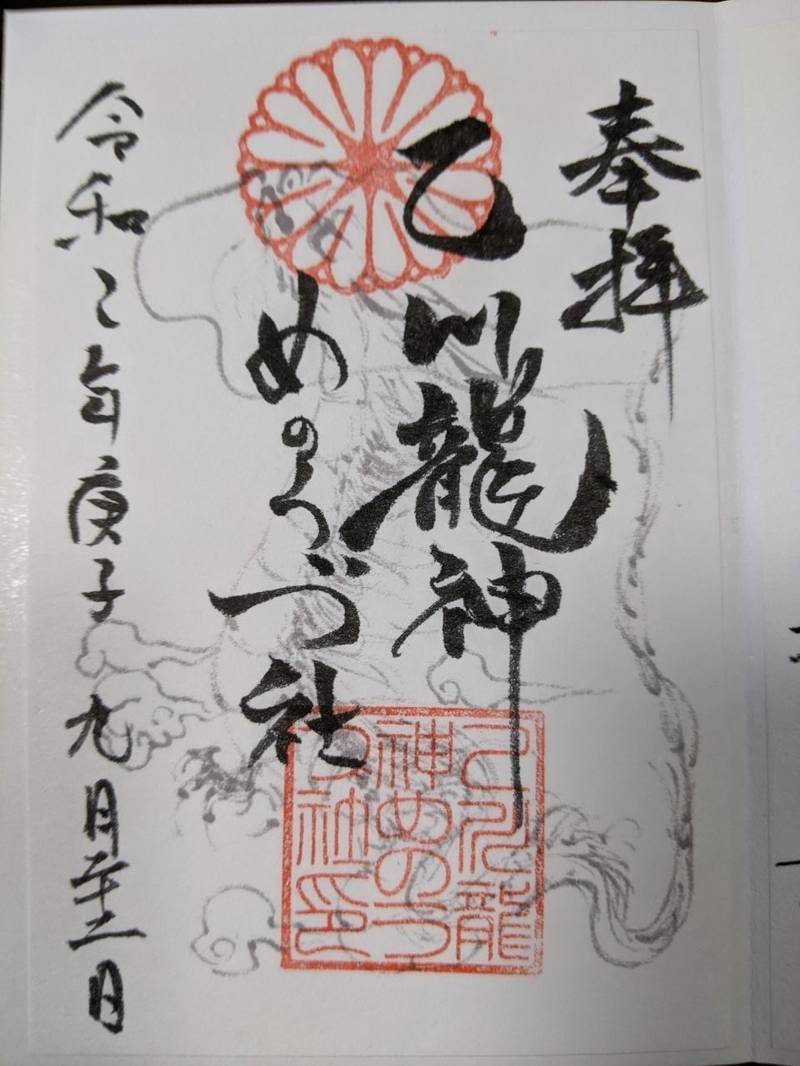 奉拝
乙川龍神
めのうづ社
令和二年庚子 九月 日
乙川龍
神めのう
づ社印